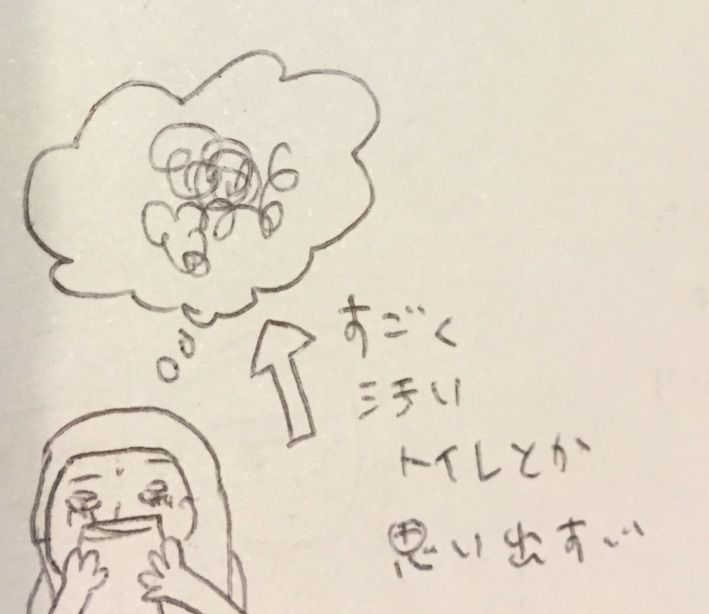 すごく
汚い
トイレとか
思い出すい